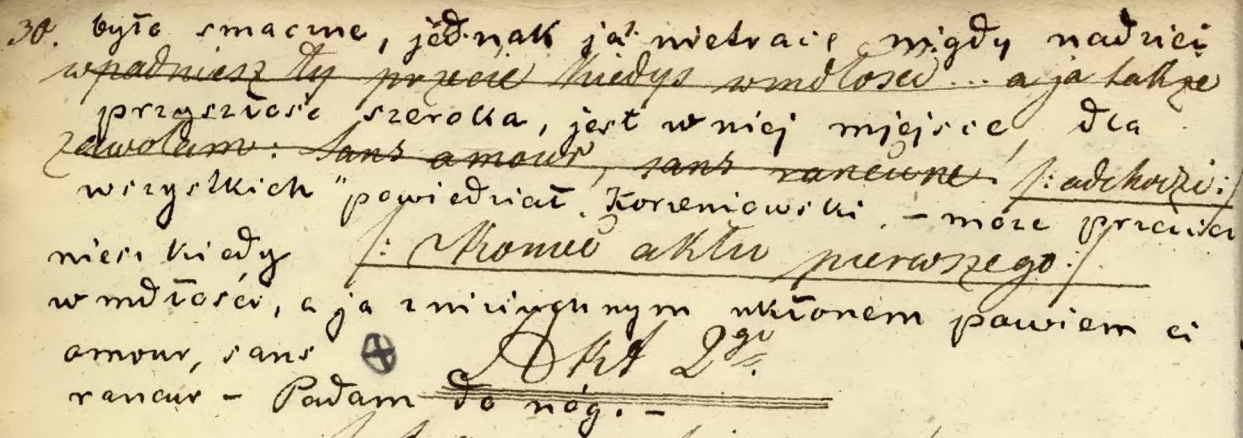 30. było smaczne, jednak ja nietracę nigdy nadziei
wpadniesz ty przecie kiedyś w mdłości ... a ja także
przyszłość szeroka, jest w niej miejsce dla
zawołam: Sans amour, sans rancune! /: odchodzi :/
wszystkich" powiedział Korzeniowski – może przecież
kiedy /: Koniec aktu pierwszego :/
w mdłości, a ja z ukłonem powiem ci
amour, sans
Akt 2go.
rancur – Padam do nóg. –